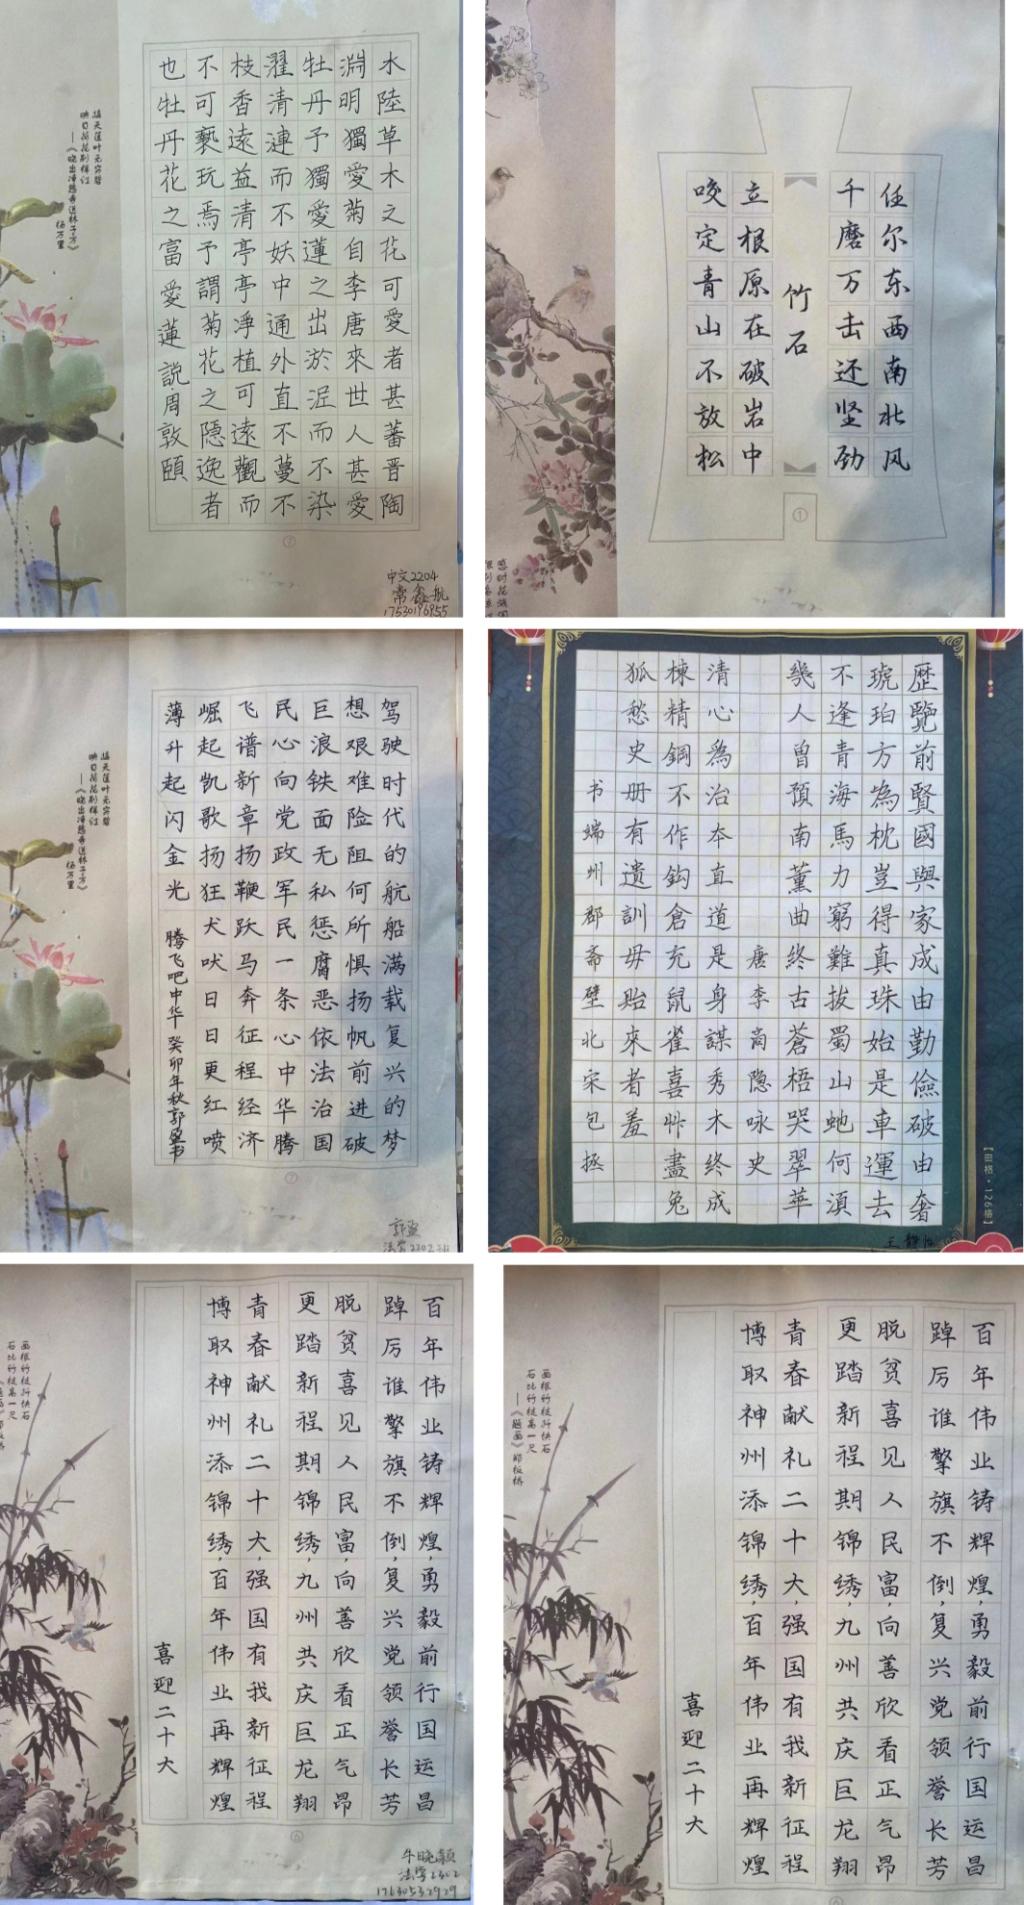 水陸草木之花可愛者甚蕃晋陶
淵明獨愛菊自李唐來世人甚愛
牡丹予獨愛蓮之出於泥而不染
濯清漣而不妖中通外直不蔓不
枝香遠益清亭亭凈植可遠觀而
不可褻玩焉予謂菊花之隱逸者
也牡丹花之富 愛蓮説 周敦頤
接天莲叶无穷碧
映日荷花别样红
——《晓出净慈寺送林子方》
杨万里
⑦
中文2204
常鑫航
17530196855
竹石
咬定青山不放松
立根原在破岩中
千磨万击还坚劲
任尔东西南北风
①
驾驶时代的航船满载复兴的梦
想艰难险阻何所惧扬帆前进破
巨浪铁面无私惩腐恶依法治国
民心向党政军民一条心中华腾
飞谱新章扬鞭跃马奔征程经济
崛起凯歌扬狂犬吠日日更红喷
薄升起闪金光 腾飞吧中华 癸卯年秋郭盈书
接天莲叶无穷碧
映日荷花别样红
——《晓出净慈寺送林子方》
杨万里
⑦
郭盈
法学2302
歷覽前賢國與家成由勤儉破由奢
琥珀方為枕豈得真珠始是車運去
不逢青海馬力窮難拔蜀山虵何湏
幾人曾預南薰曲終古蒼梧哭翠華
唐李商隐咏史
清心為治本直道是身謀秀木終成
棟精鋼不作鈎倉充鼠雀喜艸盡兔
狐愁史册有遺訓毋貽來者羞
书端州郡斋壁北宋包拯
【田格·126格】
王静怡
百年伟业铸辉煌，勇毅前行国运昌
踔厉谁擎旗不倒，复兴党领誉长芳
脱贫喜见人民富，向善欣看正气昂
更踏新程期锦绣，九州共庆巨龙翔
青春献礼二十大，强国有我新征程
博取神州添锦绣，百年伟业再辉煌
喜迎二十大
画根竹枝扦快石
石比竹枝高一尺
⑥
牛晓颖
法学2302
17630532929
百年伟业铸辉煌，勇毅前行国运昌
踔厉谁擎旗不倒，复兴党领誉长芳
脱贫喜见人民富，向善欣看正气昂
更踏新程期锦绣，九州共庆巨龙翔
青春献礼二十大，强国有我新征程
博取神州添锦绣，百年伟业再辉煌
喜迎二十大
画根竹枝扦快石
石比竹枝高一尺
——《题画》郑板桥